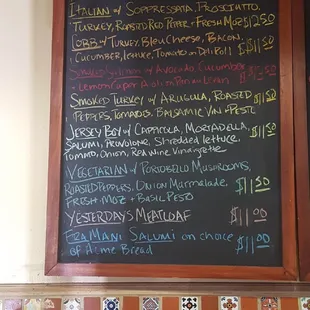 Italian w/ Sopressata, Prosciutto,
Turkey, Roasted Red Pepper + Fresh Moz $12.50
Cobb w/ Turkey, Bleu Cheese, Bacon,
Cucumber, lettuce, Tomato on Deli Roll $11.50
Smoked Salmon w/ Avocado, Cucumber
+ Lemon Caper Aioli on
Smoked Turkey w/ Arugula, Roasted
Peppers, Tomatoes, Balsamic Vin + Pesto $11.50
Jersey Boy w/ Cappicola, Mortadella,
Salumi, Provolone, Shredded lettuce,
Tomato, Onion, Red Wine Vinaigrette $11.50
Vegetarian w/ Portobello Mushrooms,
Roasted Peppers, Onion Marmalade,
Fresh Moz + Basil Pesto $11.50
Yesterdays Meatloaf $11.00
Fra'Mani Salumi on choice
of Acme Bread $11.00